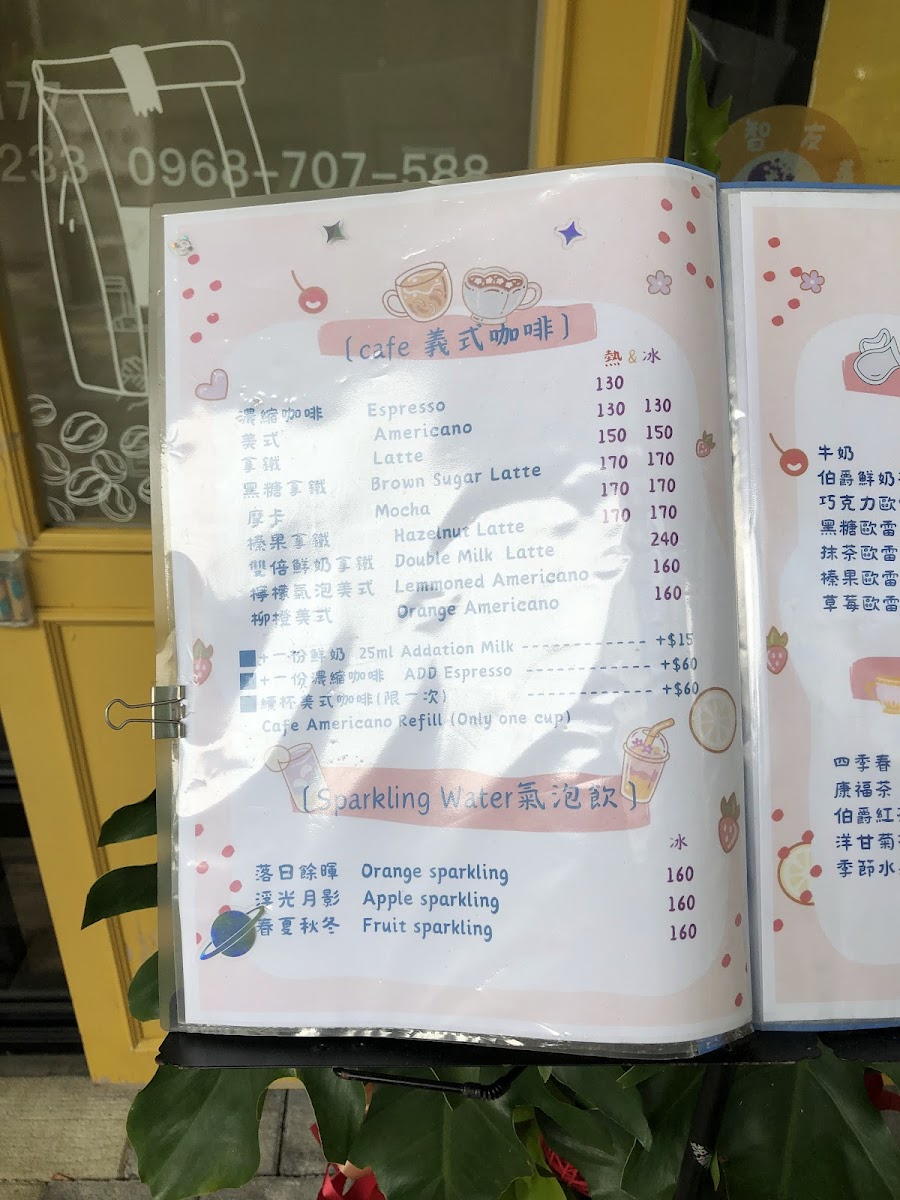 233 0968-707-588
智友
〔cafe 義式咖啡〕
熱 & 冰
濃縮咖啡 Espresso 130
美式 Americano 130 130
拿鐵 Latte 150 150
黑糖拿鐵 Brown Sugar Latte 170 170
摩卡 Mocha 170 170
榛果拿鐵 Hazelnut Latte 170 170
雙倍鮮奶拿鐵 Double Milk Latte 240
檸檬氣泡美式 Lemmoned Americano 160
柳橙美式 Orange Americano 160
+一份鮮奶 25ml Addation Milk ---------------- +$15
+一份濃縮咖啡 ADD Espresso ---------------- +$60
續杯美式咖啡(限一次) ---------------- +$60
Cafe Americano Refill (Only one cup)
〔Sparkling Water氣泡飲〕
冰
落日餘暉 Orange sparkling 160
浮光月影 Apple sparkling 160
春夏秋冬 Fruit sparkling 160
牛奶
伯爵鮮奶
巧克力歐
黑糖歐雷
抹茶歐雷
榛果歐雷
草莓歐雷
四季春
康福茶
伯爵紅
洋甘菊
季節水